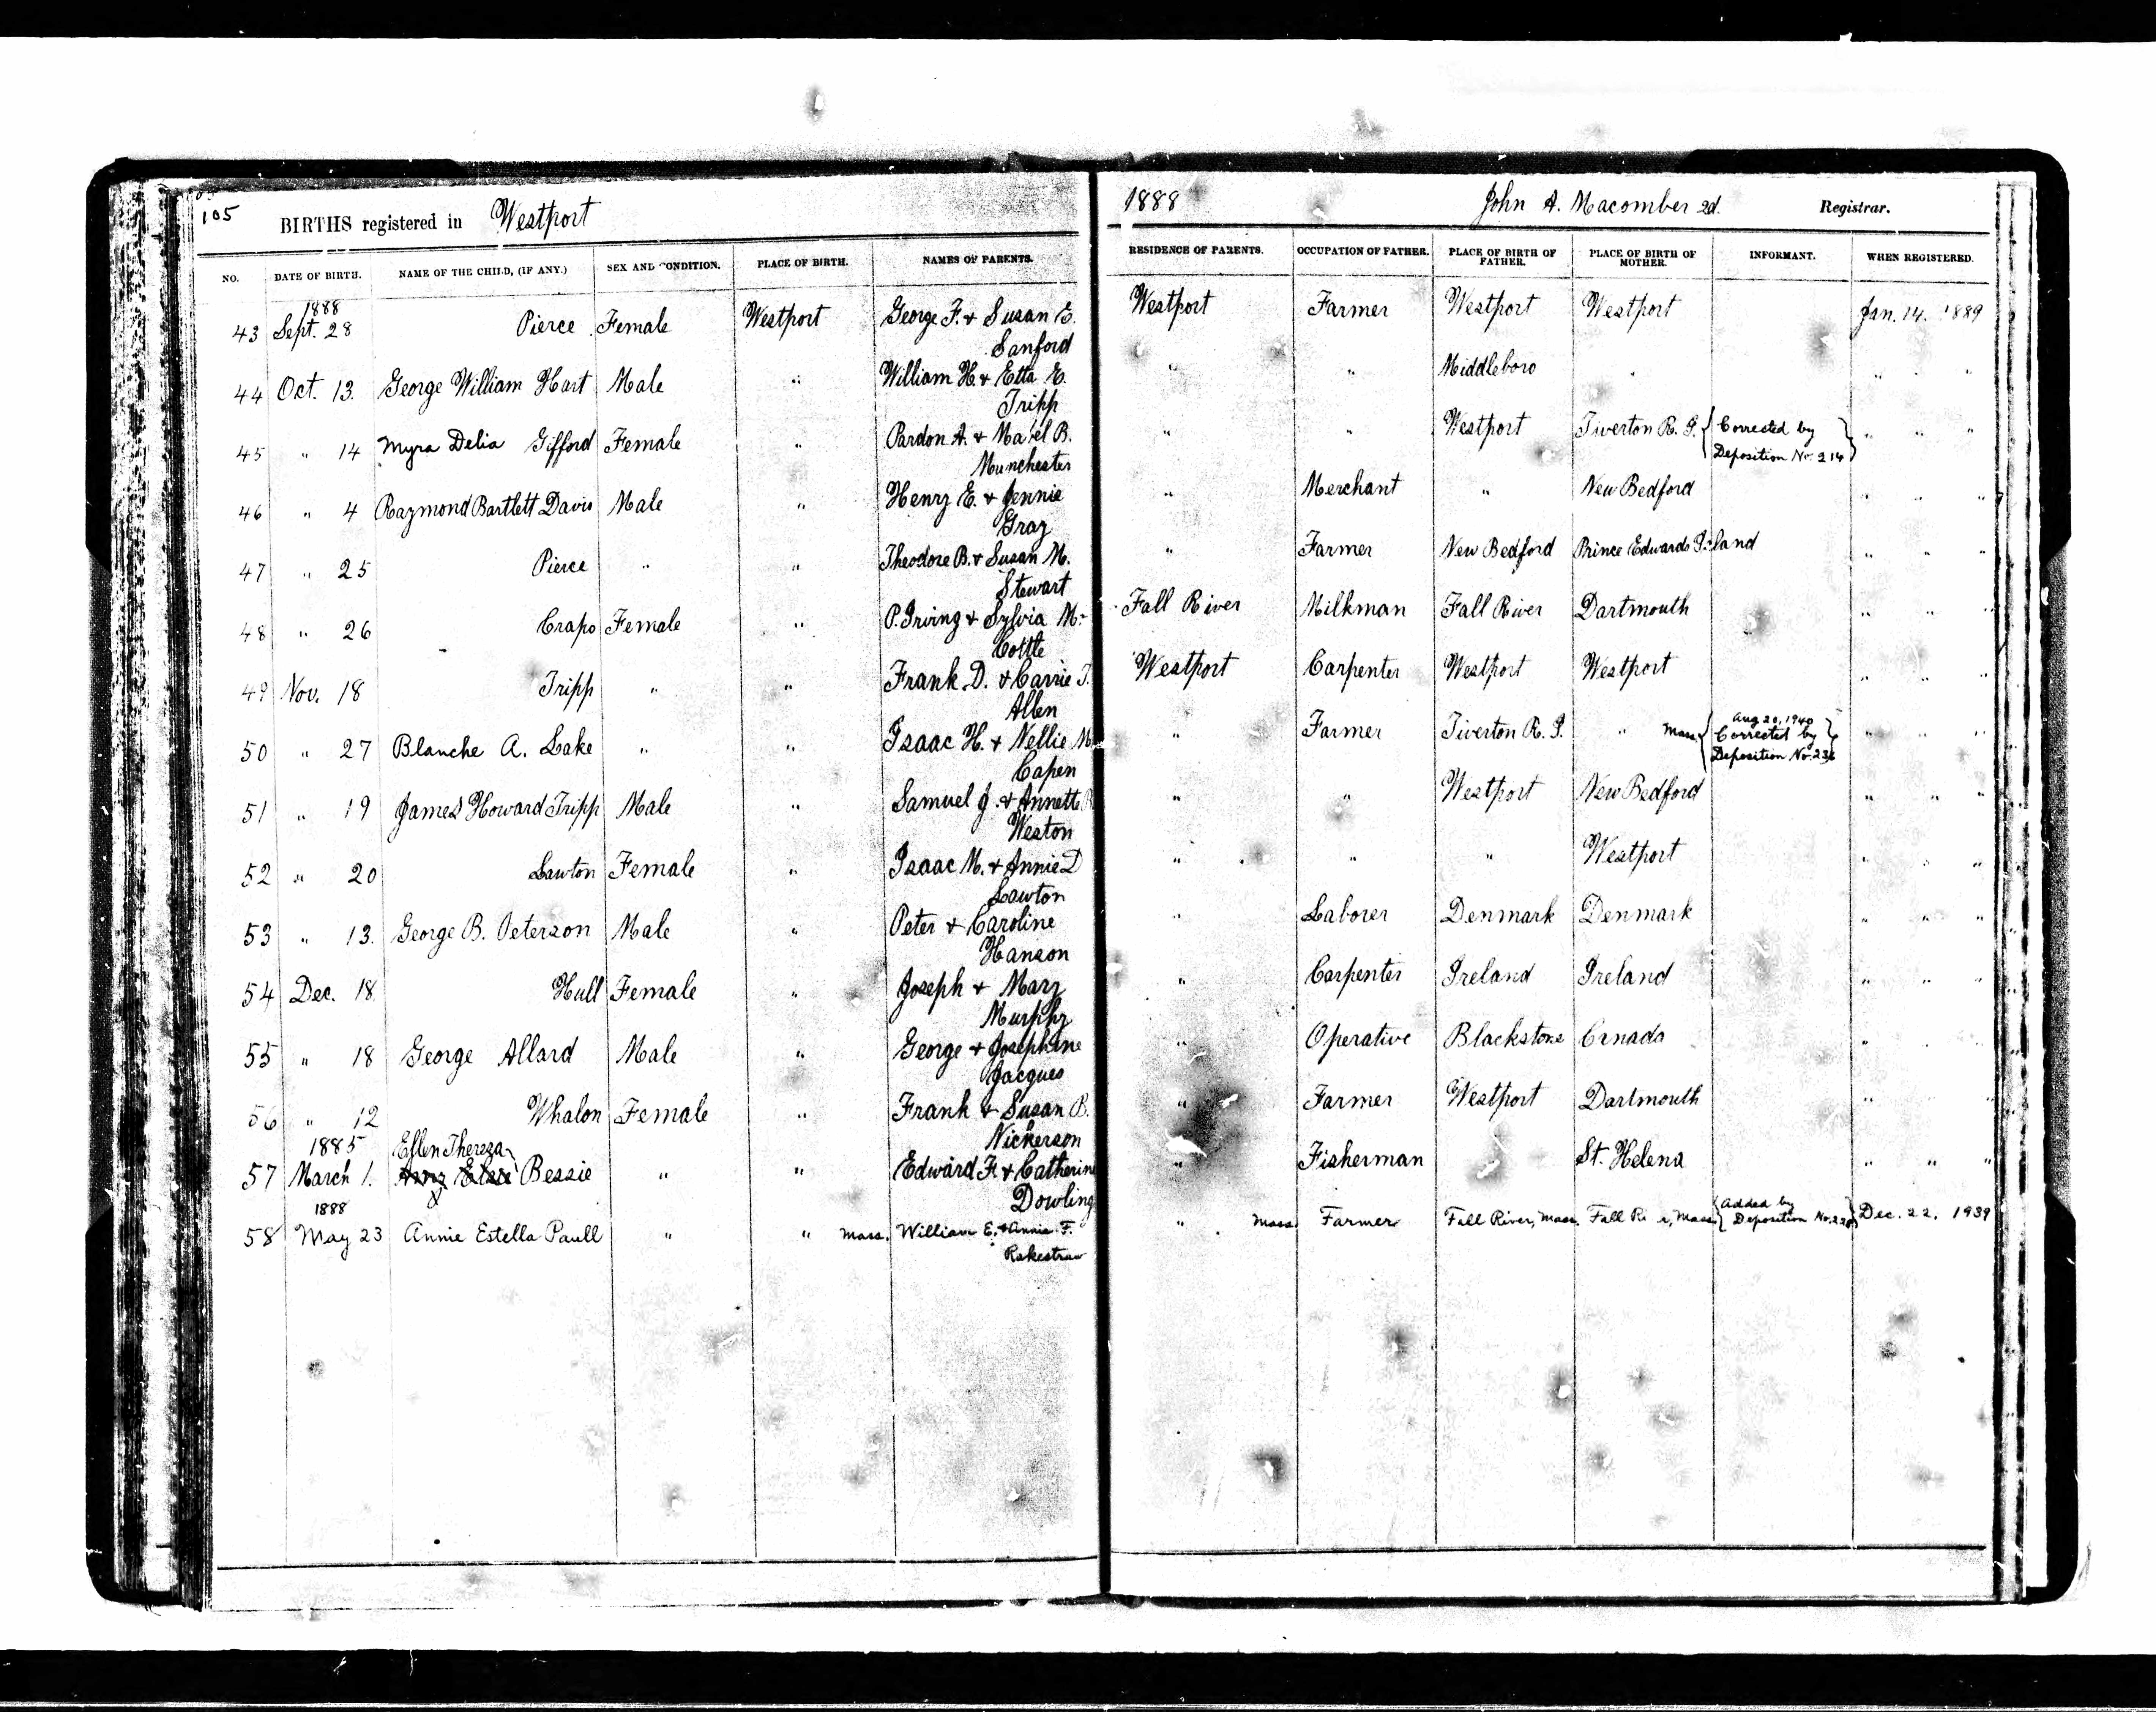 105 BIRTHS registered in Westport 1888 John A. Macomber 2d. Registrar.
NO. DATE OF BIRTH. NAME OF THE CHILD, (IF ANY.) SEX AND CONDITION. PLACE OF BIRTH. NAMES OF PARENTS. RESIDENCE OF PARENTS. OCCUPATION OF FATHER. PLACE OF BIRTH OF FATHER. PLACE OF BIRTH OF MOTHER. INFORMANT. WHEN REGISTERED.
1888
43 Sept. 28 Pierce Female Westport George F. & Susan E. Westport Farmer Westport Westport Jan. 14. 1889
Sanford
44 Oct. 13. George William Hart Male " William H. & Etta E. " " Middleboro " " " "
Tripp
45 " 14 Myra Delia Gifford Female " Pardon A. & Mabel B. " " Westport Tiverton R. I. { Corrected by } " " "
Manchester Deposition No. 214
46 " 4 Raymond Bartlett Davis Male " Henry E. & Jennie " Merchant " New Bedford " " "
Gray
47 " 25 Pierce " " Theodore B. & Susan M. " Farmer New Bedford Prince Edwards Island " " "
Stewart
48 " 26 Crapo Female " P. Irving & Sylvia M. Fall River Milkman Fall River Dartmouth " " "
Cottle
49 Nov. 18 Tripp " " Frank D. & Carrie T. Westport Carpenter Westport Westport " " "
Allen
Aug 20, 1940
50 " 27 Blanche A. Lake " " Isaac H. & Nellie M " Farmer Tiverton R. I. " Mass. { Corrected by } " " "
Capen Deposition No. 236
51 " 19 James Howard Tripp Male " Samuel J. & Annett " " Westport New Bedford " " "
Weston
52 " 20 Lawton Female " Isaac M. & Annie D " " " Westport " " "
Lawton
53 " 13. George B. Peterson Male " Peter & Caroline " Laborer Denmark Denmark " " "
Hanson
54 Dec. 18 Hull Female " Joseph & Mary " Carpenter Ireland Ireland " " "
Murphy
55 " 18 George Allard Male " George & Josephine " Operative Blackstone Canada " " "
Jacques
56 " 12 Whalon Female " Frank & Susan B. " Farmer Westport Dartmouth " " "
Nickerson
1885 Ellen Thereza
57 March 1. Amy Elsie Bessie " " Edward F. & Catherine " Fisherman " St. Helena " " "
Dowling
1888
58 May 23 Annie Estella Paull " " Mass. William E. & Annie F. " Mass. Farmer Fall River, Mass. Fall River, Mass. { Added by Deposition No. 228 } Dec. 22, 1939
Rakestraw